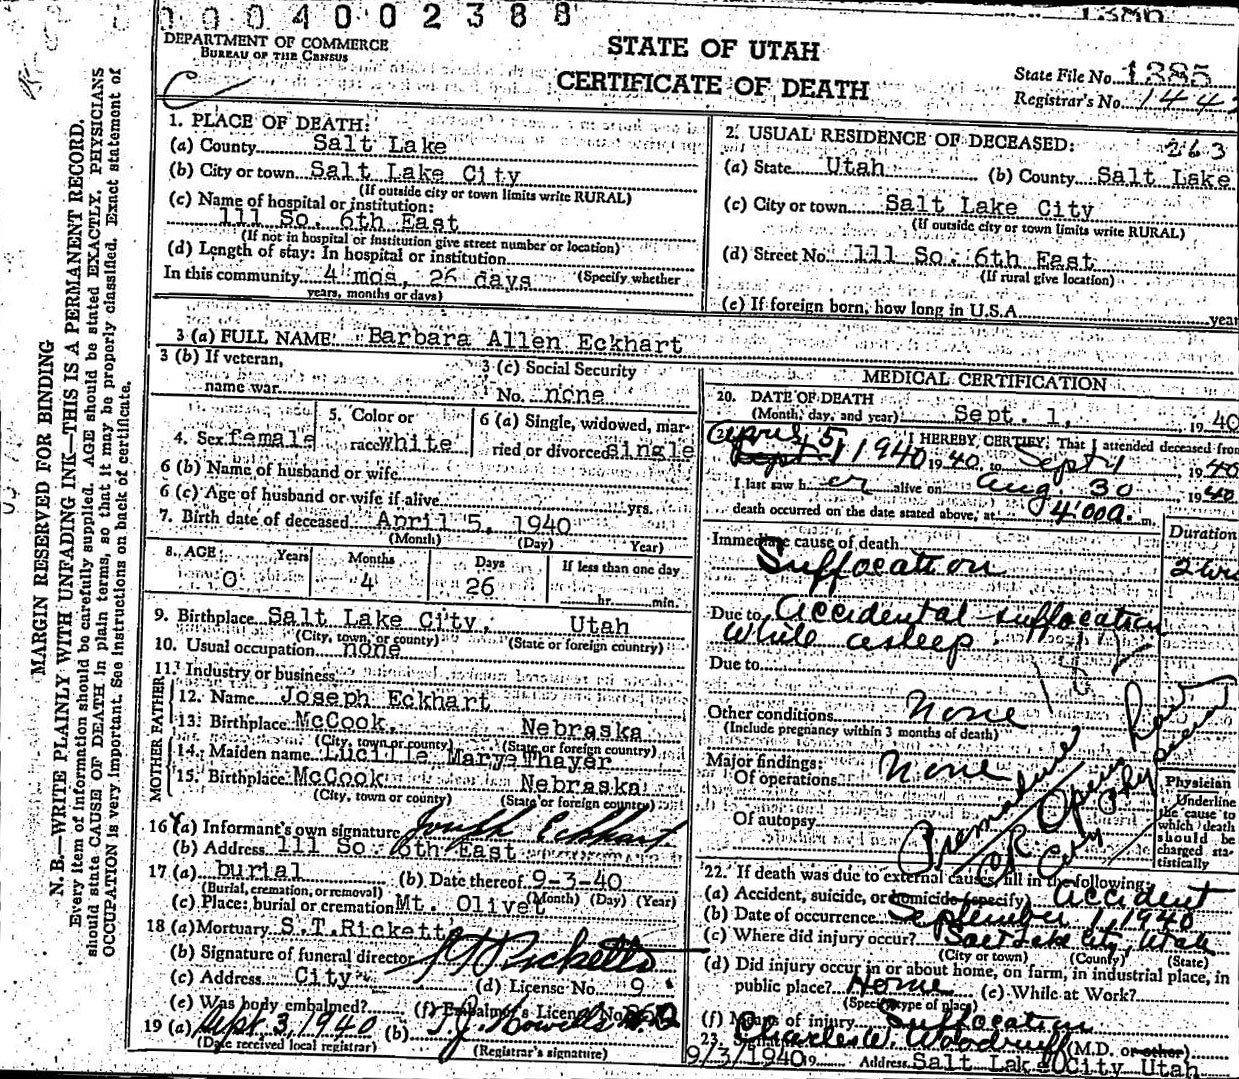 0 0 0 4 0 0 2 3 8 8
DEPARTMENT OF COMMERCE
BUREAU OF THE CENSUS
STATE OF UTAH
CERTIFICATE OF DEATH
State File No. 1385
Registrar's No. 144
MARGIN RESERVED FOR BINDING
N. B.—WRITE PLAINLY WITH UNFADING INK—THIS IS A PERMANENT RECORD.
Every item of information should be carefully supplied. AGE should be stated EXACTLY. PHYSICIANS
should state CAUSE OF DEATH in plain terms, so that it may be properly classified. Exact statement of
OCCUPATION is very important. See instructions on back of certificate.
1. PLACE OF DEATH:
(a) County Salt Lake
(b) City or town Salt Lake City
(If outside city or town limits write RURAL)
(c) Name of hospital or institution:
111 So. 6th East
(If not in hospital or institution give street number or location)
(d) Length of stay: In hospital or institution
In this community 4 mos, 26 days (Specify whether
years, months or days)
2. USUAL RESIDENCE OF DECEASED:
263
(a) State Utah (b) County Salt Lake
(c) City or town Salt Lake City
(If outside city or town limits write RURAL)
(d) Street No. 111 So. 6th East
(If rural give location)
(e) If foreign born, how long in U.S.A. year
3 (a) FULL NAME Barbara Allen Eckhart
3 (b) If veteran,
name war
3 (c) Social Security
No. none
4. Sex female
5. Color or
race White
6 (a) Single, widowed, mar-
ried or divorced single
6 (b) Name of husband or wife
6 (c) Age of husband or wife if alive yrs.
7. Birth date of deceased April 5, 1940
(Month) (Day) Year)
8. AGE Years Months Days If less than one day
0 4 26 hr. min.
9. Birthplace Salt Lake City, Utah
(City, town, or county) (State or foreign country)
10. Usual occupation none
11. Industry or business
FATHER
12. Name Joseph Eckhart
13. Birthplace McCook, Nebraska
(City, town or county) (State or foreign country)
MOTHER
14. Maiden name Lucille Marye Thayer
15. Birthplace McCook Nebraska
(City, town or county) (State or foreign country)
16 (a) Informant's own signature Joseph Eckhart
(b) Address 111 So. 6th East
17 (a) burial (b) Date thereof 9-3-40
(Burial, cremation, or removal) (Month) (Day) (Year)
(c) Place: burial or cremation Mt. Olivet
18 (a) Mortuary S.T.Ricketts
(b) Signature of funeral director S T Ricketts
(c) Address City (d) License No. 9
(e) Was body embalmed? (f) Embalmer's License No.
19 (a) Sept. 3, 1940 (b) T. J. Howells
(Date received local registrar) (Registrar's signature)
MEDICAL CERTIFICATION
20. DATE OF DEATH
(Month, day, and year) Sept. 1, 1940
I HEREBY CERTIFY, That I attended deceased from
April 5 Sept 1 1940 1940 to Sept 1 1940
I last saw her alive on Aug 30 1940
death occurred on the date stated above, at 4:00 a. m.
Duration
Immediate cause of death
Suffocation
Due to Accidental suffocation
while asleep
Due to
Other conditions None
(Include pregnancy within 3 months of death)
Major findings:
Of operations None
Of autopsy
Premature
Physician
Underline
the cause to
which death
should be
charged sta-
tistically
22. If death was due to external causes, fill in the following:
(a) Accident, suicide, or homicide (specify) Accident
(b) Date of occurrence September 1, 1940
(c) Where did injury occur? Salt Lake City, Utah
(City or town) (County) (State)
(d) Did injury occur in or about home, on farm, in industrial place, in
public place? Home (e) While at Work?
(Specify type of place)
(f) Means of injury Suffocation
23. Signature Charles W. Woodruff (M.D. or other)
9/3/1940 19 Address Salt Lake City Utah